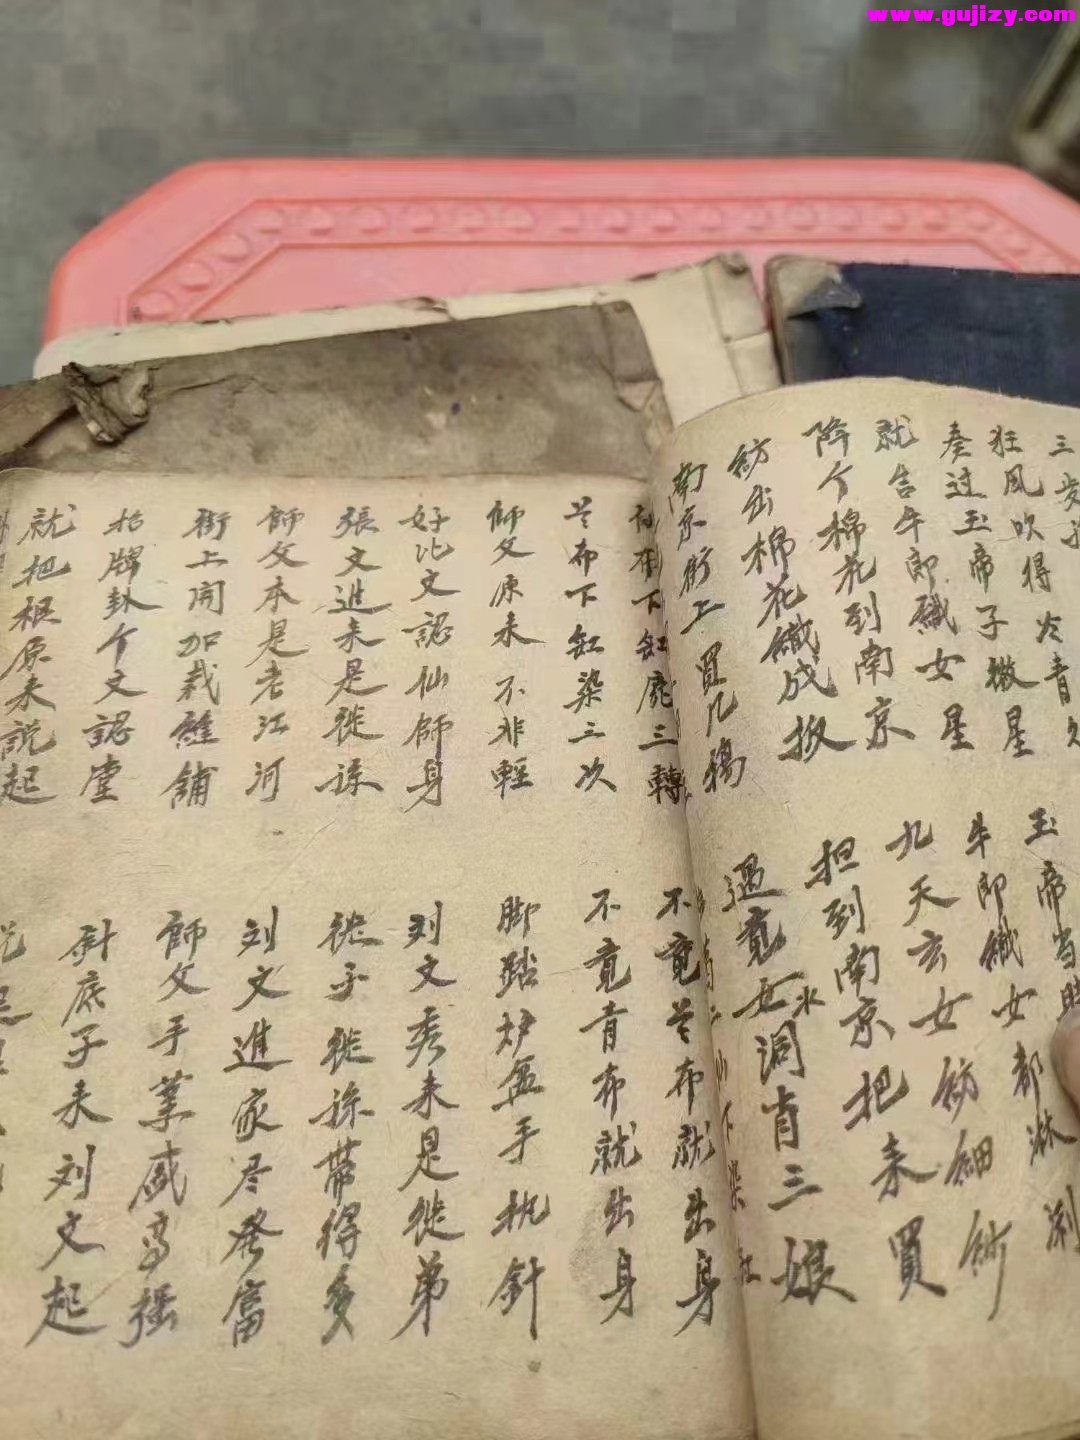 www.gujizy.com
三步
狂风吹得冷青
奏过玉帝子撒星
就告牛郎織女星
降个棉花到南京
紡出棉花織成扳
南京街上買几
玉帝当
牛郎織女都淋
九天玄女紡細紗
担到南京把来買
遇竟女水洞肖三娘
下缸 三轉
不竟 布就出身
布下缸染三次
不竟青布就出身
師父原来不非輕
脚踏炉盆手执針
好比文認仙師身
刘文秀来是徙弟
張文進来是徙孫
徙子徙孫带得多
師父本是老江河
刘文進家尽発富
街上開加栽縫舖
師父手業盛高强
招牌卦个文認堂
底子来刘文起
就把根原来説起